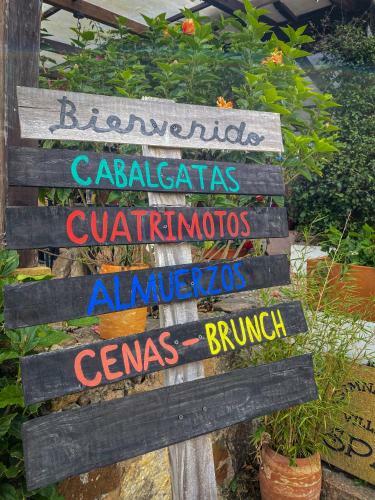 Bienvenido
CABALGATAS
CUATRIMOTOS
ALMUERZOS
CENAS-BRUNCH